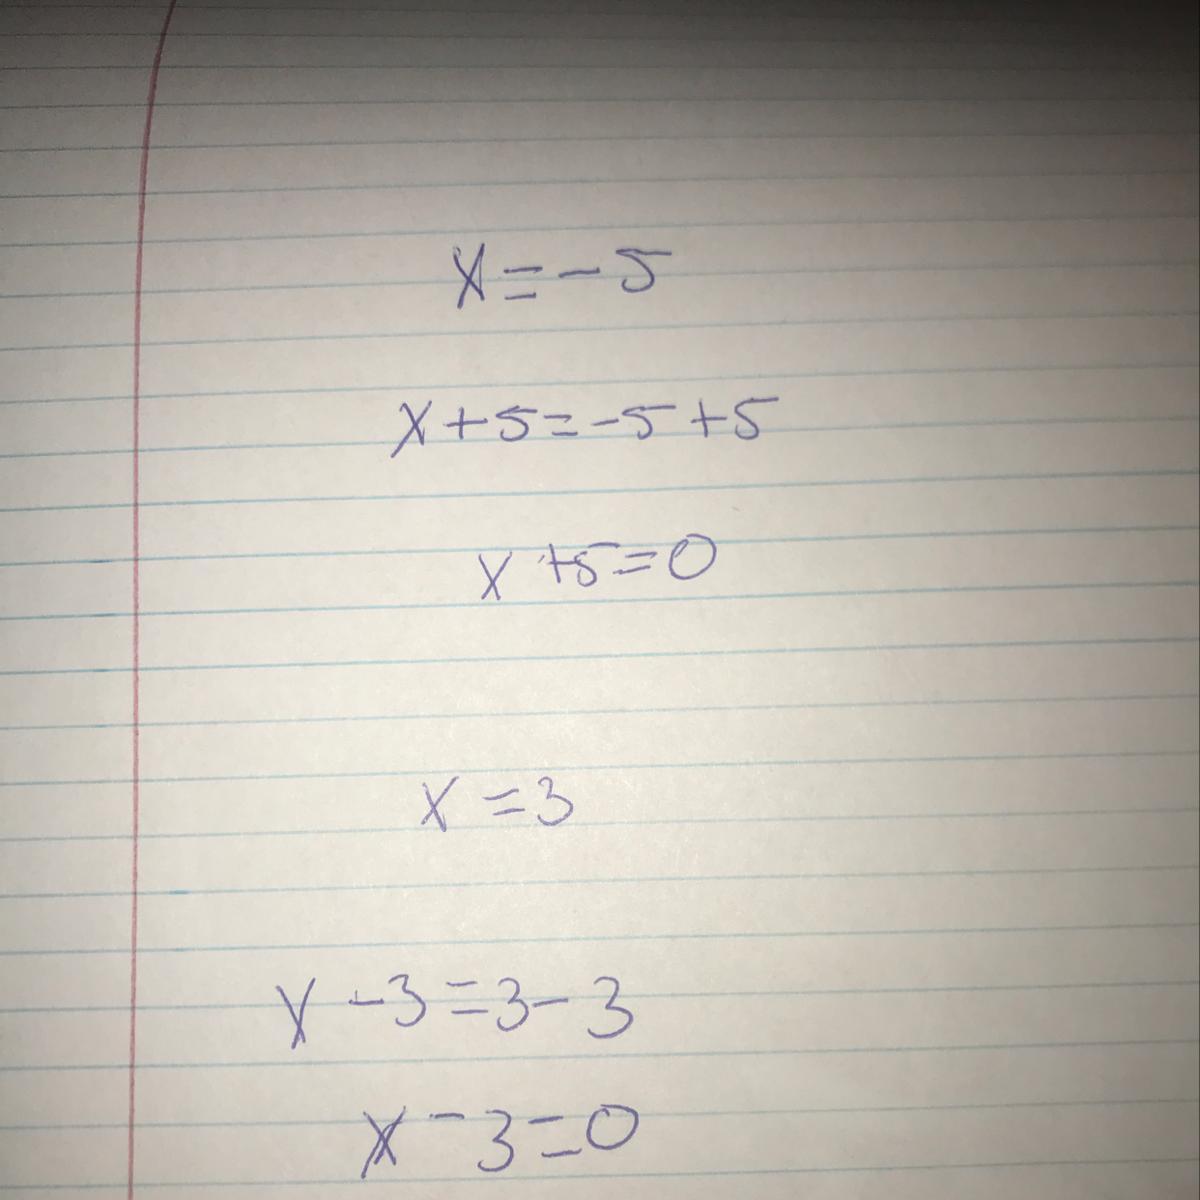 x=-5
x+5=-5+5
x+5=0
x=3
x-3=3-3
x-3=0